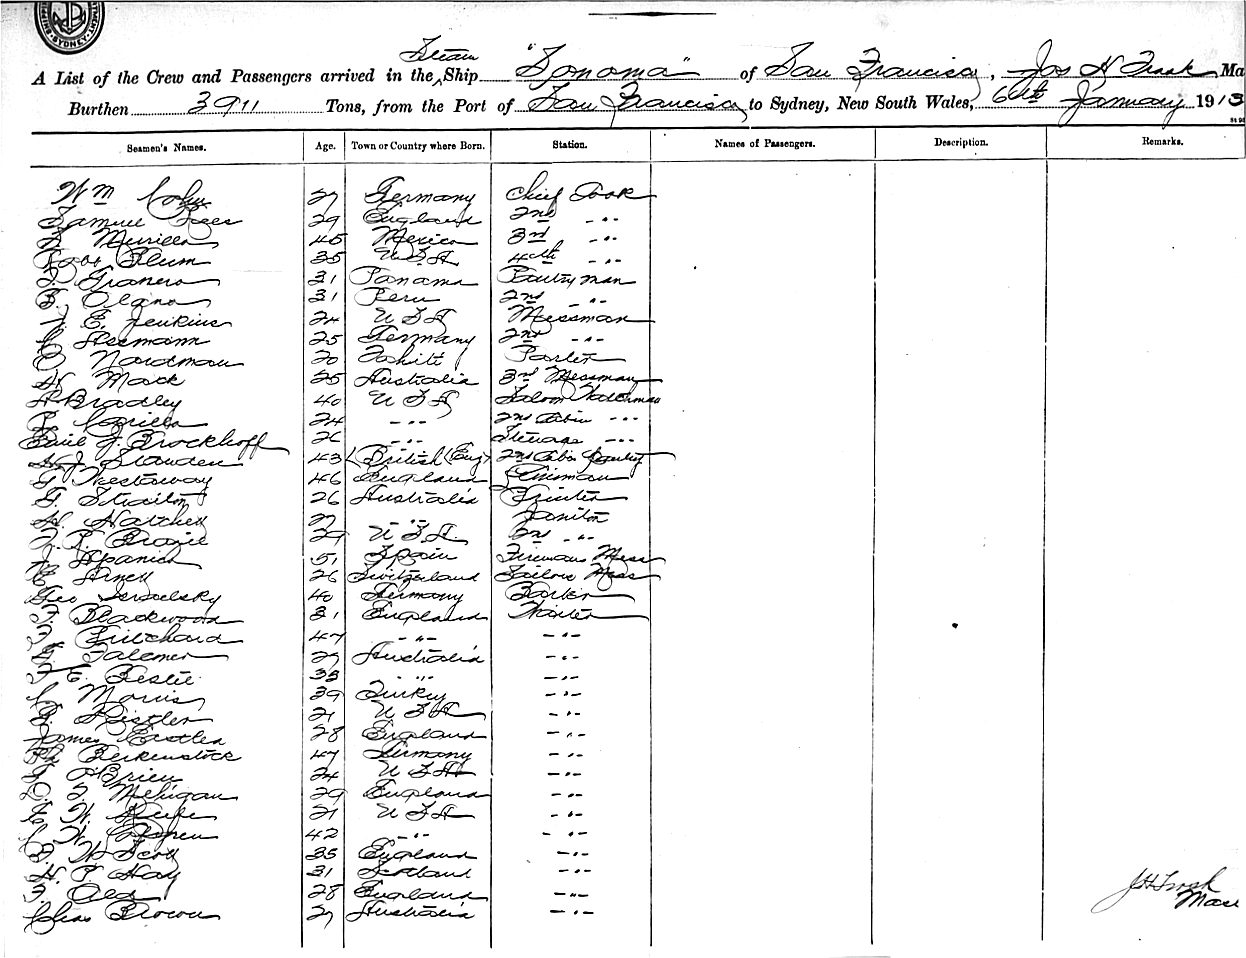 SYDNEY
Steam
A List of the Crew and Passengers arrived in the Ship "Sonoma" of San Francisco, Jos H Trask Ma
Burthen 3911 Tons, from the Port of San Francisco to Sydney, New South Wales, 6th January 1913
Seamen's Names. Age. Town or Country where Born. Station. Names of Passengers. Description. Remarks.
Wm 27 Germany Chief Cook
Samuel 29 England 2nd -"-
Murillo 45 Mexico 3rd -"-
Blum 35 USA 4th -"-
Granero 31 Panama Pantryman
Olano 31 Peru 2nd -"-
E. Jenkins 24 USA Messman
Assmann 25 Germany 2nd -"-
Nordman 20 Tahiti Porter
H Mack 25 Australia 3rd Messman
A Bradley 40 USA Saloon Watchman
24 -"- 2nd Cabin -"-
Emil J. Brockhoff 26 -"- Steerage -"-
H J Standen 43 British (Eng) 2nd Cabin Pantry
G Westaway 46 England Linenman
G. Straiton 26 Australia Printer
H. Hatchell 27 -"- Janitor
29 USA 2nd -"-
J. Spanich 51 Spain Firemans Mess
E Arney 26 Switzerland Sailors Mess
Geo 40 Germany Barber
F. Blackwood 31 England Waiter
F. Pritchard 47 -"- -"-
27 Australia -"-
F E. Leslie 33 -"- -"-
C Morris 39 Turkey -"-
Kistler 21 USA -"-
James 28 England -"-
Berkenstock 47 Germany -"-
F O'Brien 24 USA -"-
D. F. Mehigan 29 England -"-
E W. Keefe 21 USA -"-
C W. 42 -"- -"-
W Scott 35 England -"-
H. P. Hay 31 Scotland -"-
F. Old 28 England -"-
Chas Brown 27 Australia -"-
JH Trask
Mas